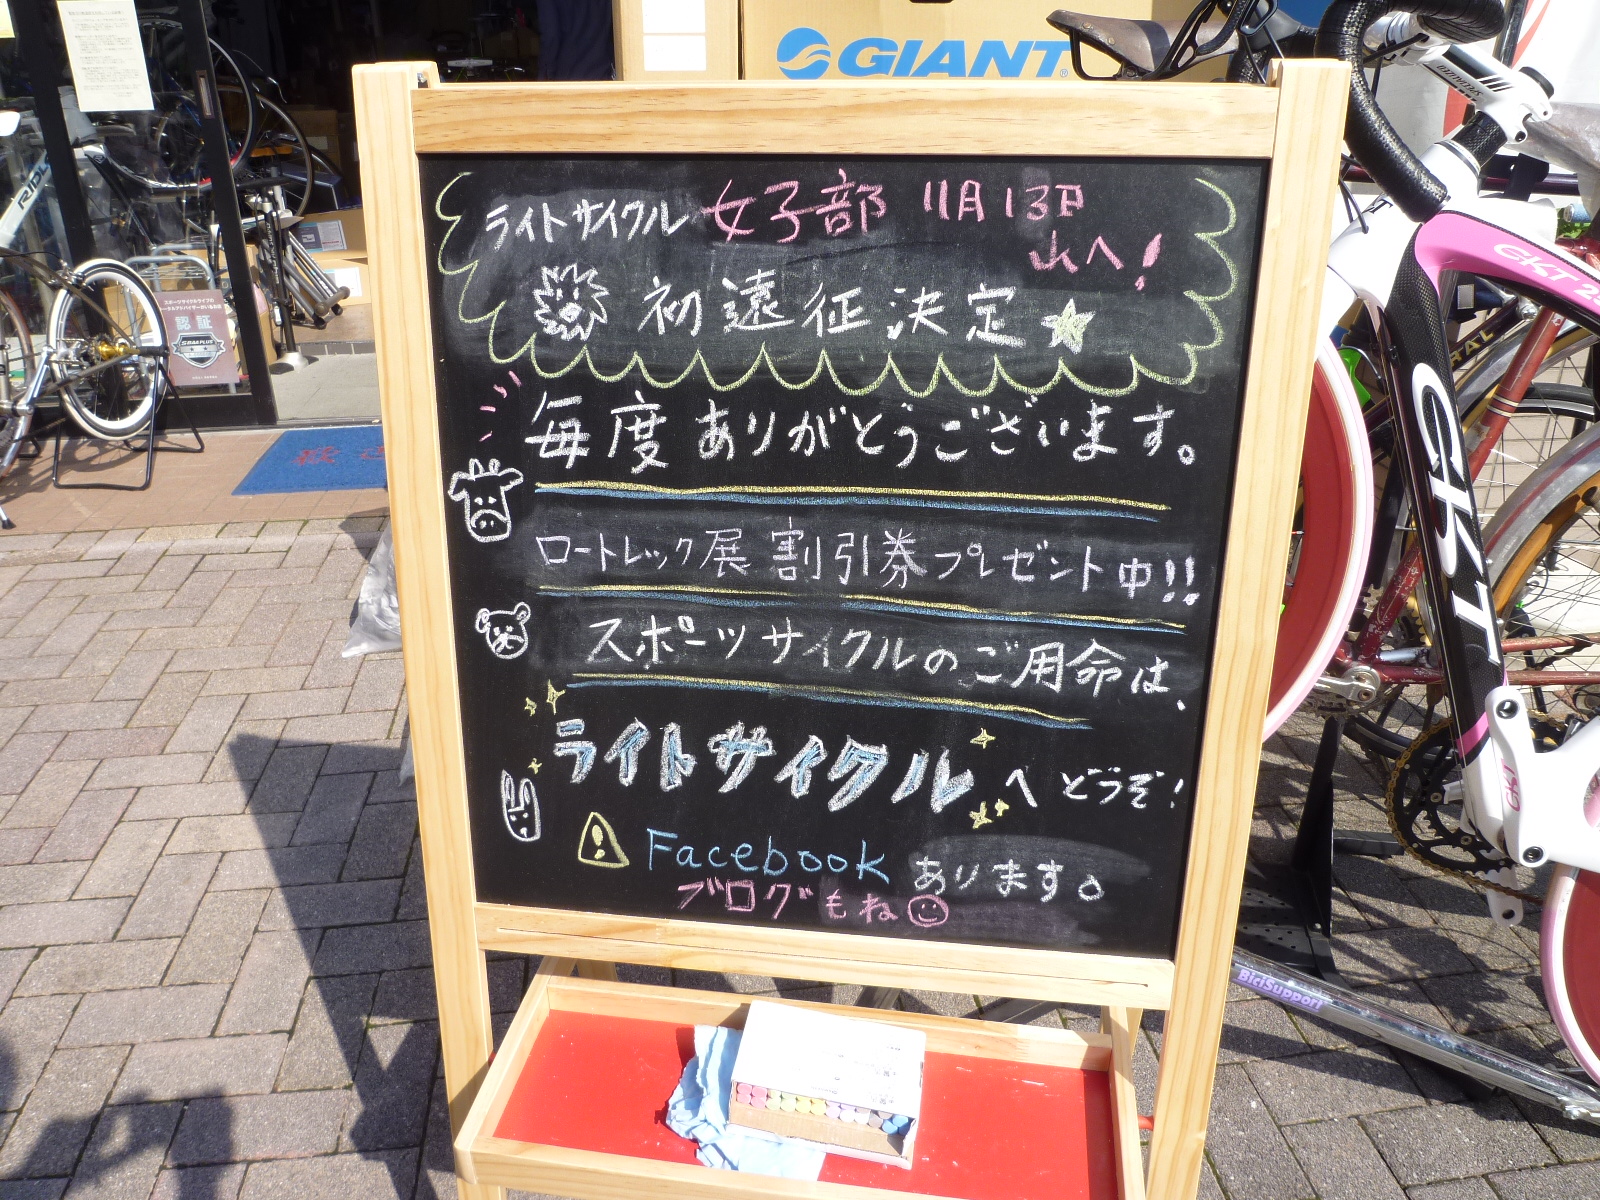 GIANT
ライトサイクル 女子部 11月13日
山へ!
初遠征決定
毎度ありがとうございます。
ロートレック展 割引券プレゼント中!!
スポーツサイクルのご用命は、
ライトサイクルへどうぞ!
Facebook あります。
ブログもね
RIDL
認証
SBAA PLUS
GKT
GKT
BiciSupport